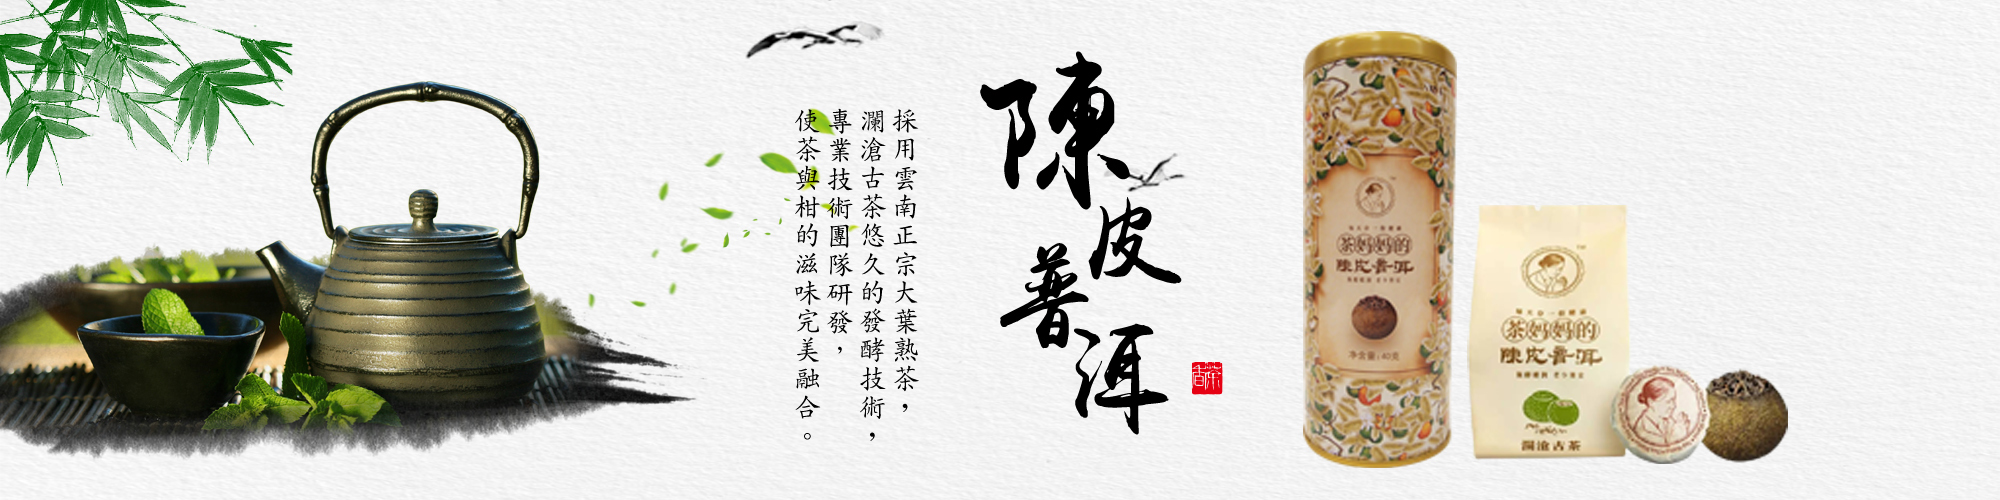 陳皮普洱
茶香
採用雲南正宗大葉熟茶，
瀾滄古茶悠久的發酵技術，
專業技術團隊研發，
使茶與柑的滋味完美融合。
茶妈妈的
陳皮普洱
净含量:40克
茶妈妈的
陳皮普洱
瀾滄古茶